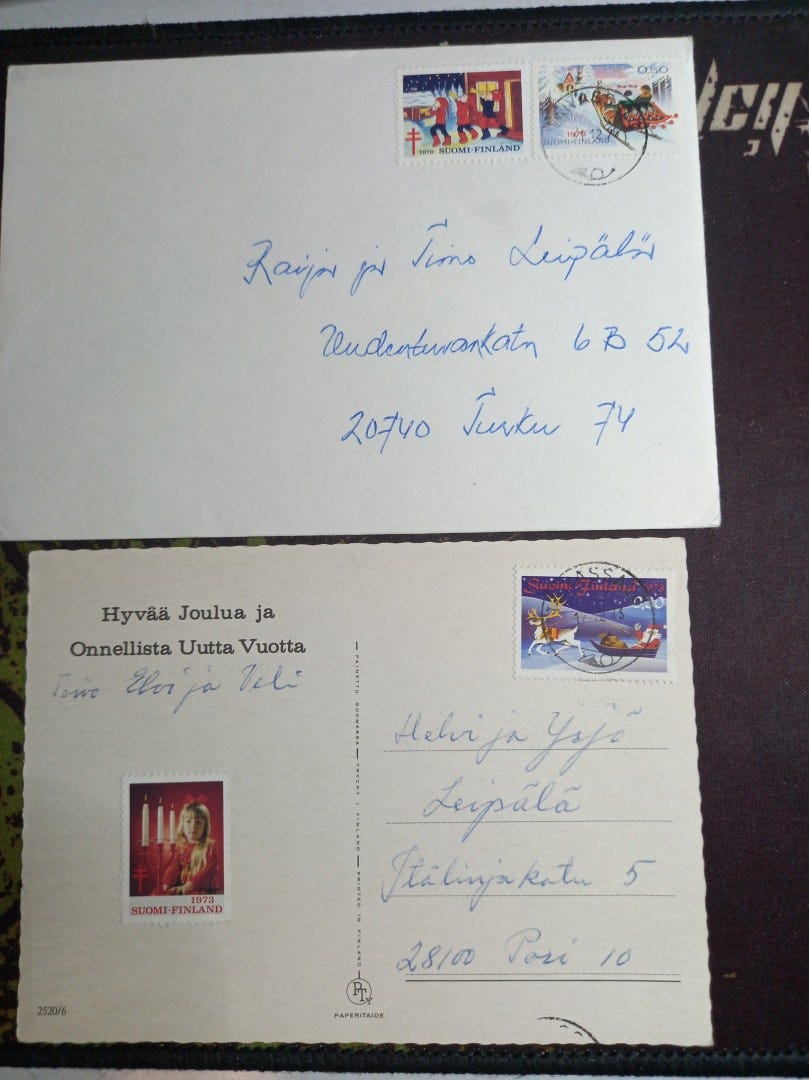 1976 SUOMI-FINLAND
0,50
1976
SUOMI-FINLAND
Raija ja Timo Leipälä
6 B 52
20740 Turku 74
Hyvää Joulua ja
Onnellista Uutta Vuotta
Toivo Elvi ja Veli
1973
SUOMI-FINLAND
2520/6
PAINETTU SUOMESSA — TRYCKT I FINLAND — PRINTED IN FINLAND
PTy
PAPERITAIDE
Suomi Finland 1973
Helvi ja Yrjö
Leipälä
Itälinjakatu 5
28100 Pori 10